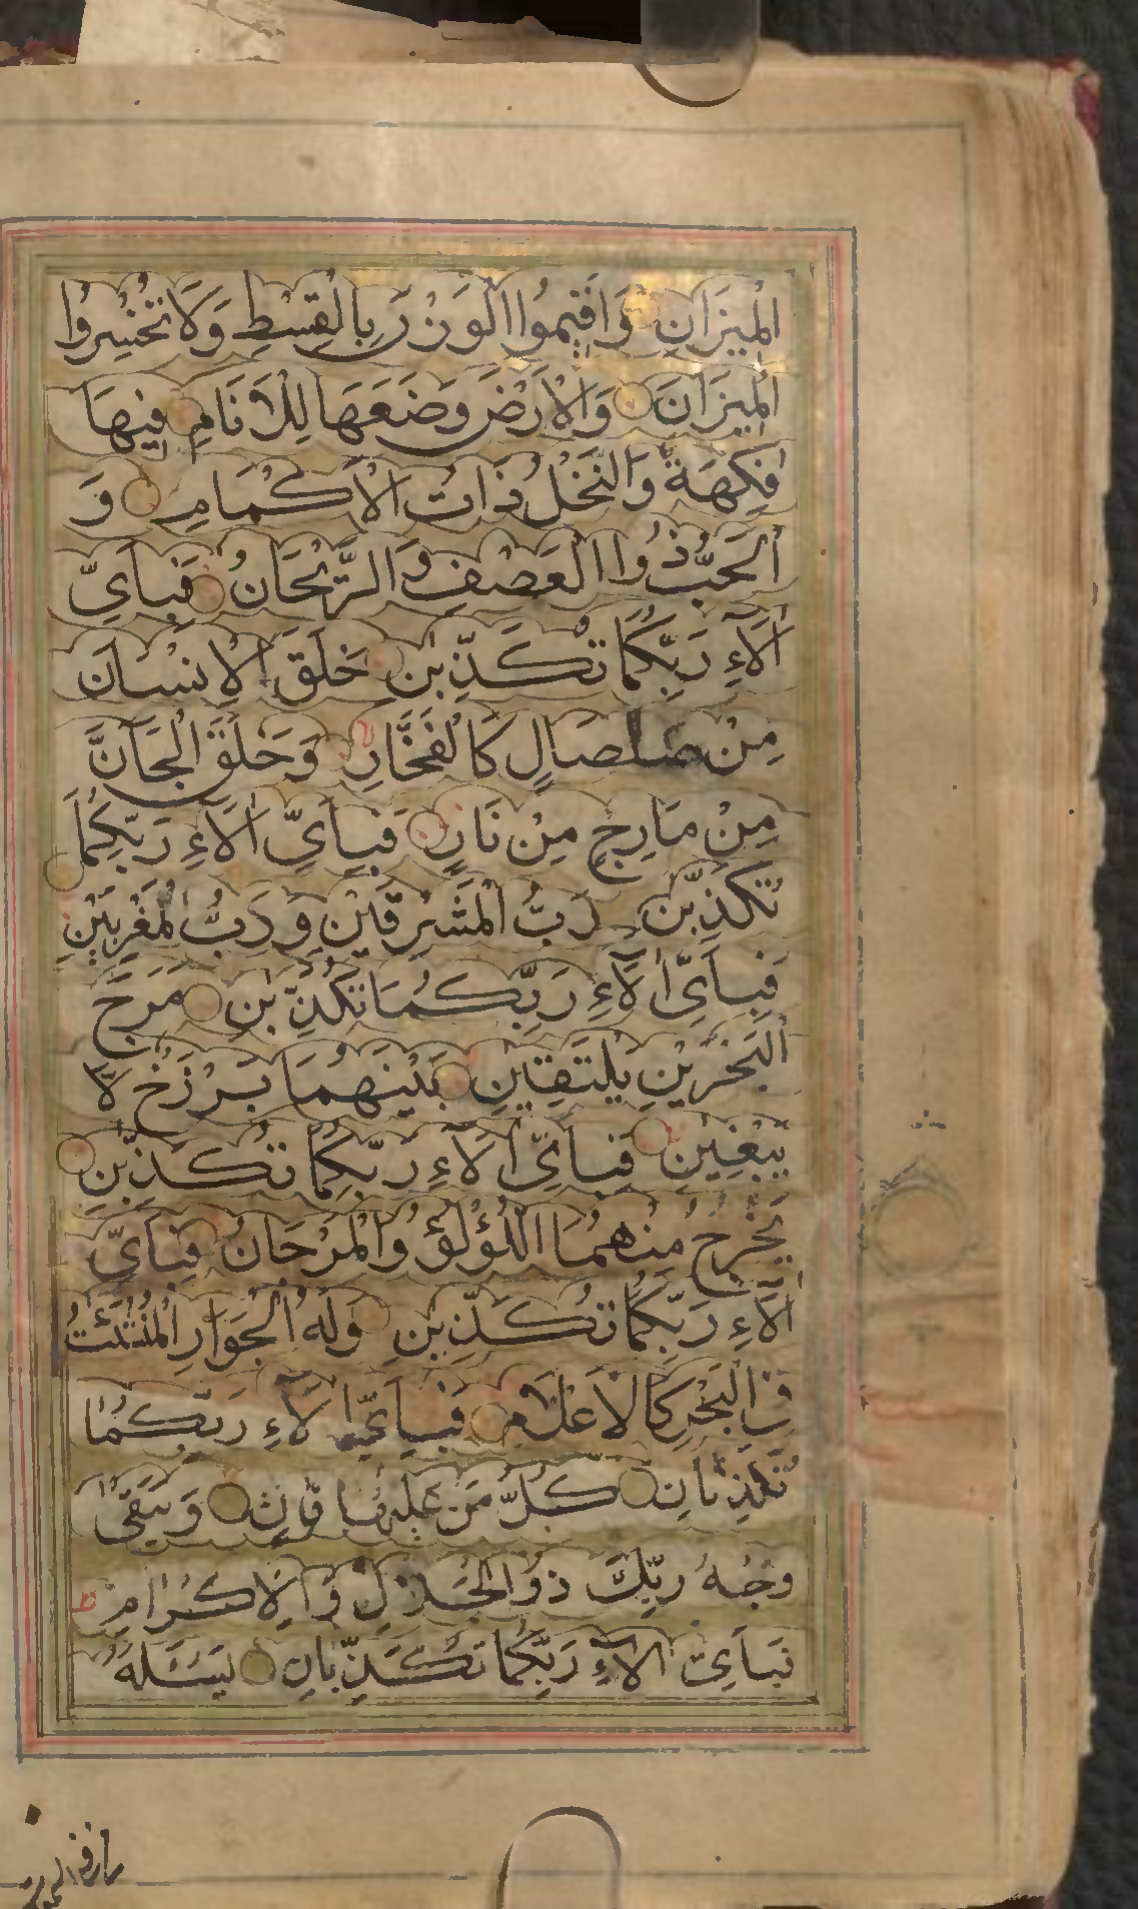 الْمِيزَانِ وَاَقِيمُوا الْوَزْنَ بِالْقِسْطِ وَلَا تُخْسِرُوا
الْمِيزَانَ وَالْاَرْضَ وَضَعَهَا لِلْاَنَامِ فِيهَا
فَكِهَةٌ وَالنَّخْلُ ذَاتُ الْاَكْمَامِ وَ
الْحَبُّ ذُوا الْعَصْفِ وَالرَّيْحَانُ فَبِاَيِّ
اٰلَآءِ رَبِّكُمَا تُكَذِّبٰنِ خَلَقَ الْاِنْسَانَ
مِنْ صَلْصَالٍ كَالْفَخَّارِ وَخَلَقَ الْجَآنَّ
مِنْ مَارِجٍ مِنْ نَارٍ فَبِاَيِّ اٰلَآءِ رَبِّكُمَا
تُكَذِّبٰنِ رَبُّ الْمَشْرِقَيْنِ وَرَبُّ الْمَغْرِبَيْنِ
فَبِاَيِّ اٰلَآءِ رَبِّكُمَا تُكَذِّبٰنِ مَرَجَ
الْبَحْرَيْنِ يَلْتَقِيٰنِ بَيْنَهُمَا بَرْزَخٌ لَّا
يَبْغِيٰنِ فَبِاَيِّ اٰلَآءِ رَبِّكُمَا تُكَذِّبٰنِ
يَخْرُجُ مِنْهُمَا اللُّؤْلُؤُ وَالْمَرْجَانُ فَبِاَيِّ
اٰلَآءِ رَبِّكُمَا تُكَذِّبٰنِ وَلَهُ الْجَوَارِ الْمُنْشَئٰتُ
فِي الْبَحْرِ كَالْاَعْلَامِ فَبِاَيِّ اٰلَآءِ رَبِّكُمَا
تُكَذِّبَانِ كُلُّ مَنْ عَلَيْهَا فَانٍ وَيَبْقٰى
وَجْهُ رَبِّكَ ذُو الْجَلَالِ وَالْاِكْرَامِ
فَبِاَيِّ اٰلَآءِ رَبِّكُمَا تُكَذِّبَانِ يَسْـَٔلُهُ